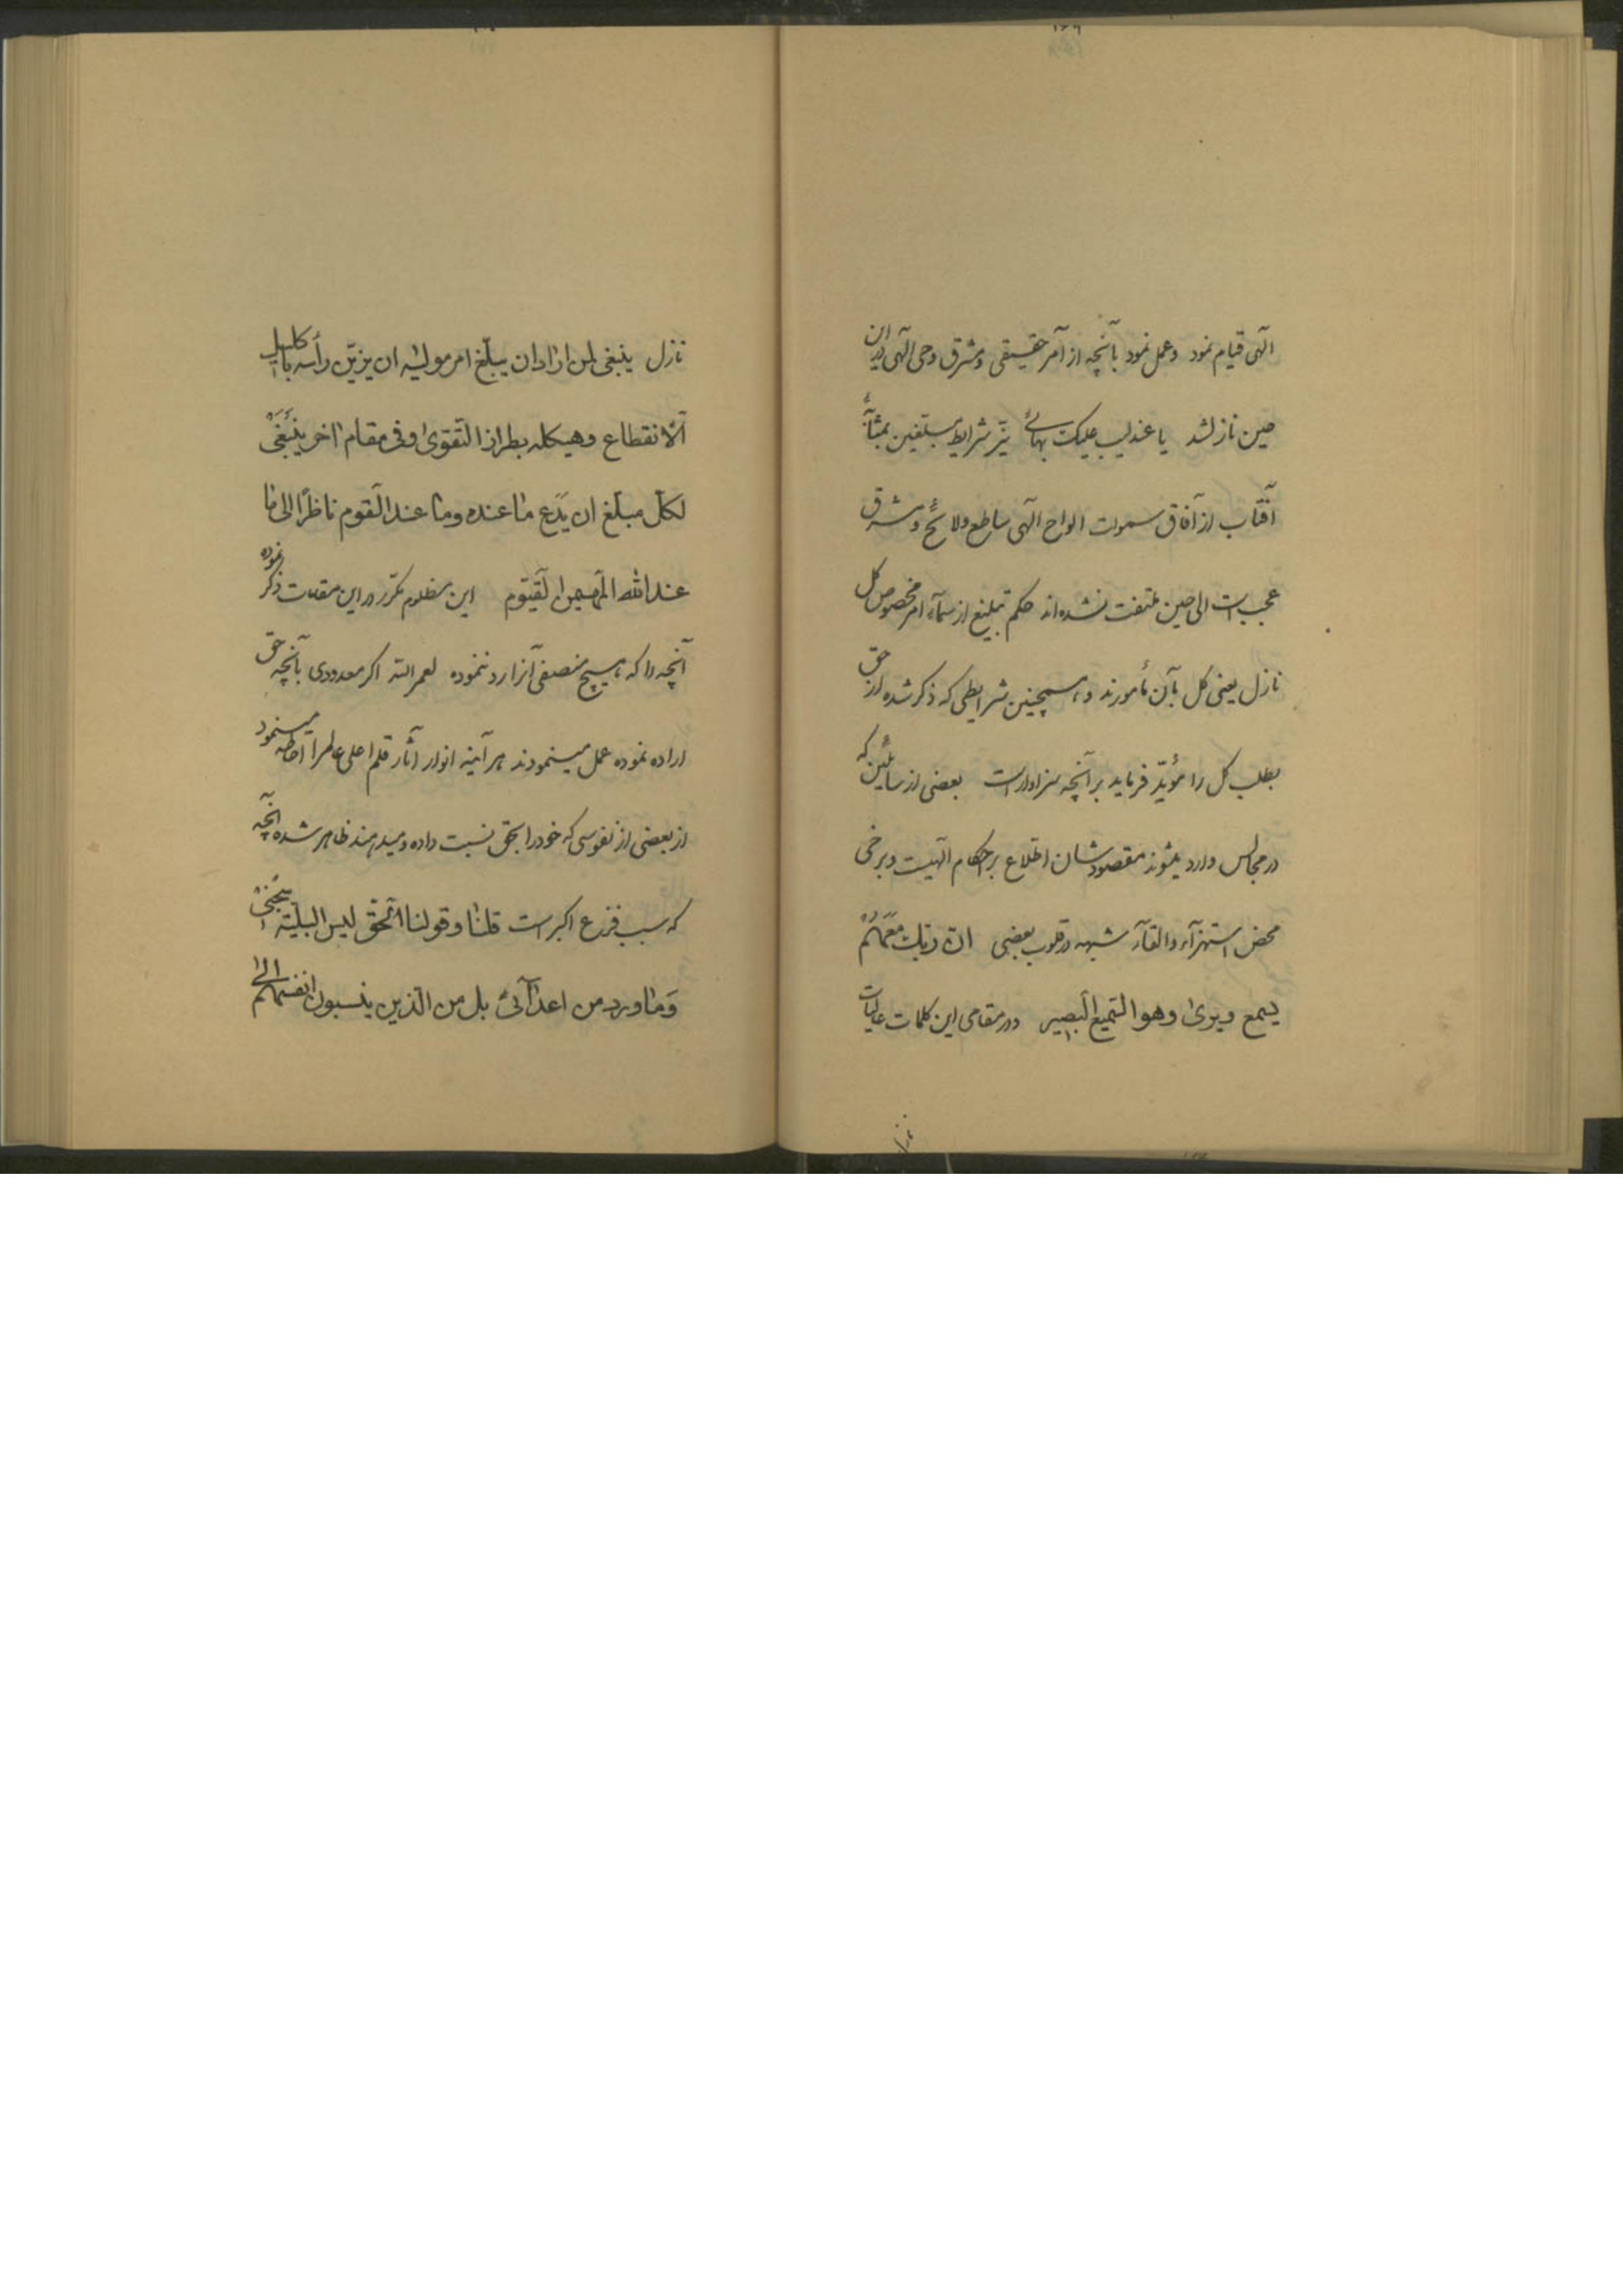 الهی قیام نمود وعمل نمود بآنچه از آمر حقیقی ومشرق وحی الهی در این
حین نازلشد یا عندلیب علیک بهائی نیّر شرایط مبلّغین بمثابهٴ
آفتاب از آفاق سموات الواح الهی ساطع ولائح ومشرق
عجب است الی حین ملتفت نشده‌اند حکم تبلیغ از سمآء امر مخصوص کل
نازل یعنی کل بآن مأمورند وهمچنین شرایطی که ذکر شده از حق
بطلب کل را مؤیّد فرماید بر آنچه سزاوار است بعضی از سائلین که
در مجالس وارد میشوند مقصودشان اطلاع بر احکام الهیست وبرخی
محض استهزآء والقآء شبهه در قلوب بعضی انّ ربّک معهم
یسمع ویری وهو السّمیع البصیر ودر مقامی این کلمات عالیات
نازل ینبغی لمن اراد ان یبلّغ امر مولیه ان یزیّن رأسه باکلیل
الانقطاع وهیکله بطراز التّقوی وفی مقام اخر ینبغی
لکلّ مبلّغ ان یدع ما عنده وما عند القوم ناظرًا الی ما
عند الله المهیمن القیّوم این مظلوم مکرّر در این مقامات ذکر نموده
آنچه را که هیچ منصفی آنرا رد ننموده لعمر الله اکر معدودی بآنچه حق
اراده نموده عمل مینمودند هر آینه انوار آثار قلم اعلی عالم را احاطه مینمود
از بعضی از نفوسی که خود را بحق نسبت داده ومیدهند ظاهر شده آنچه
که سبب فزع اکبر است قلنا وقولنا الحقّ لیس البلیّة سجنی
وما ورد من اعدآئی بل من الّذین ینسبون انفسهم الی